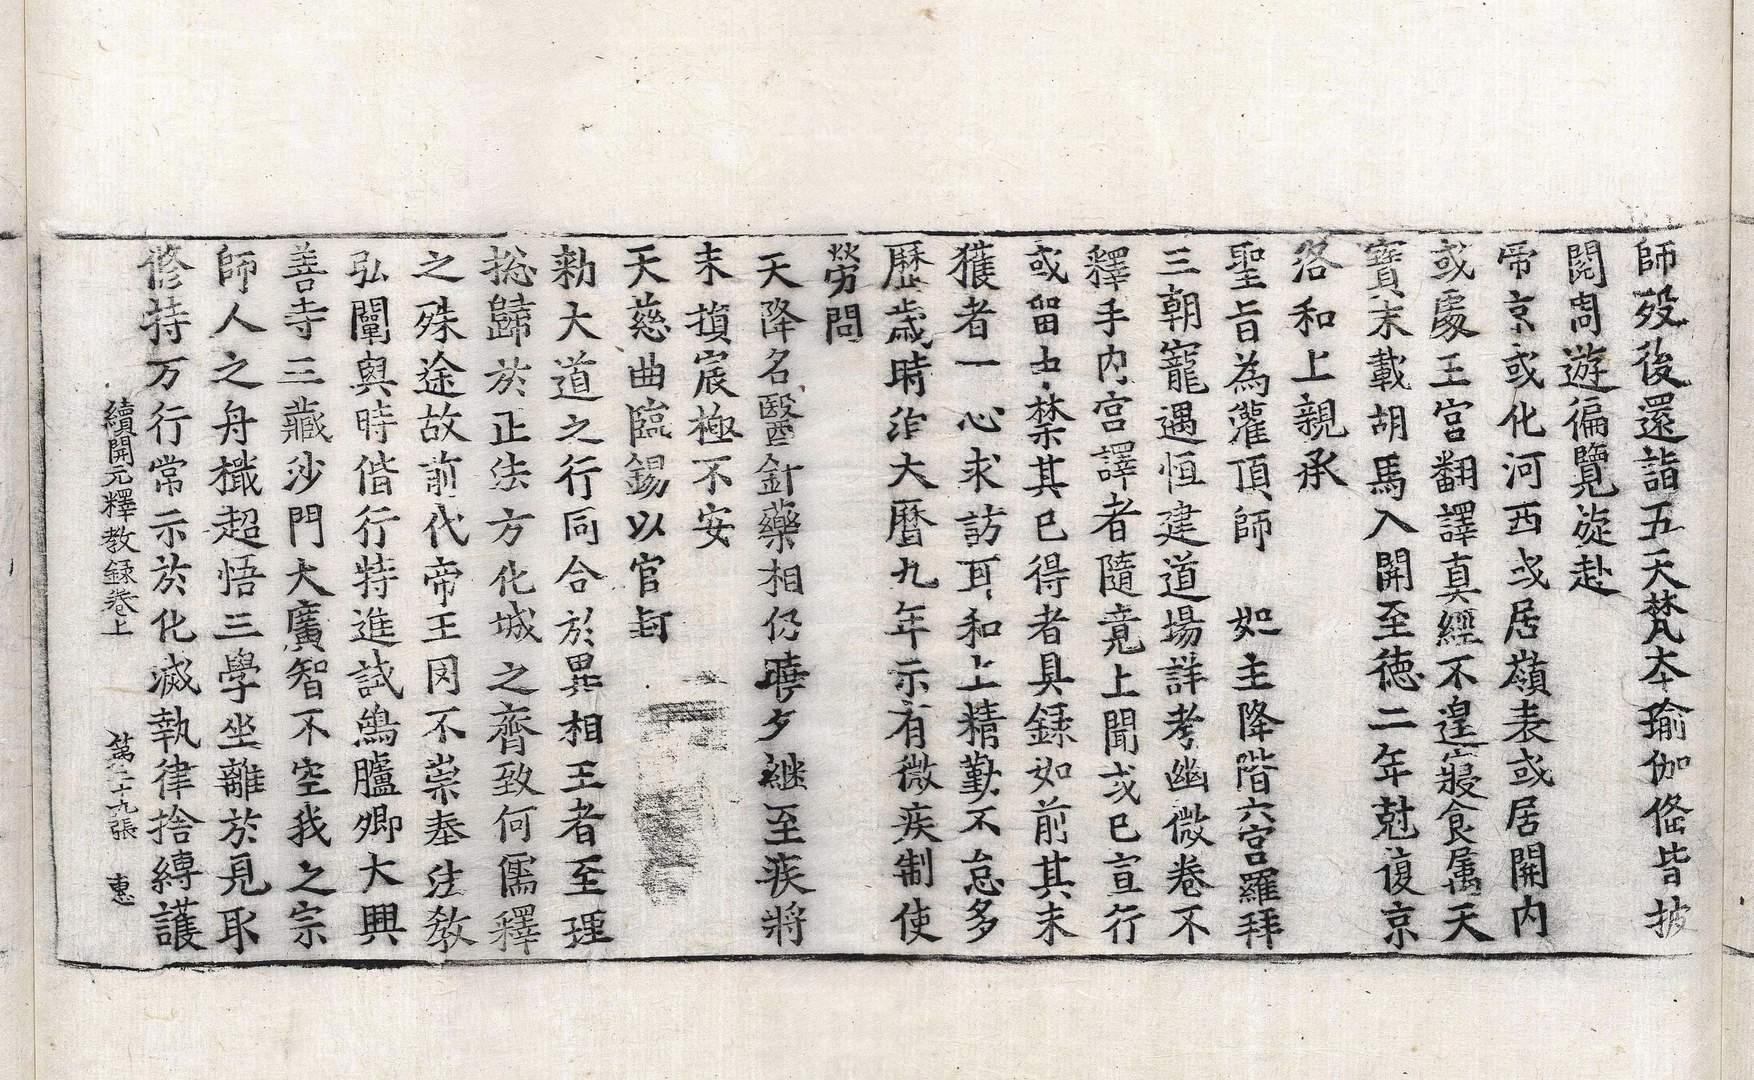 師歿後還詣五天梵本瑜伽俻皆披
閱周遊徧覽旋赴
帝京或化河西或居嶺表或居關内
或處王宮翻譯真經不遑寢食屬天
寶末載胡馬入關至德二年尅復京
洛和上親承
聖旨為灌頂師 如主降階六宮羅拜
三朝寵遇恒建道場詳考幽微卷不
釋手内宮譯者隨竟上聞或已宣行
或留中禁其已得者具録如前其未
獲者一心求訪耳和上精勤不怠多
歷歲時洎大曆九年示有微疾制使
勞問
天降名毉針藥相仍曉夕継至疾將
未損宸極不安
天慈曲臨錫以官封
勑大道之行同合於異相王者至理
揔歸於正法方化城之齊致何儒釋
之殊途故前代帝王罔不崇奉法教
弘闡與時偕行特進試鴻臚卿大興
善寺三藏沙門大廣智不空我之宗
師人之舟檝超悟三學坐離於見取
修持万行常示於化滅執律捨縛護
續開元釋教録卷上 第二十九張 惠